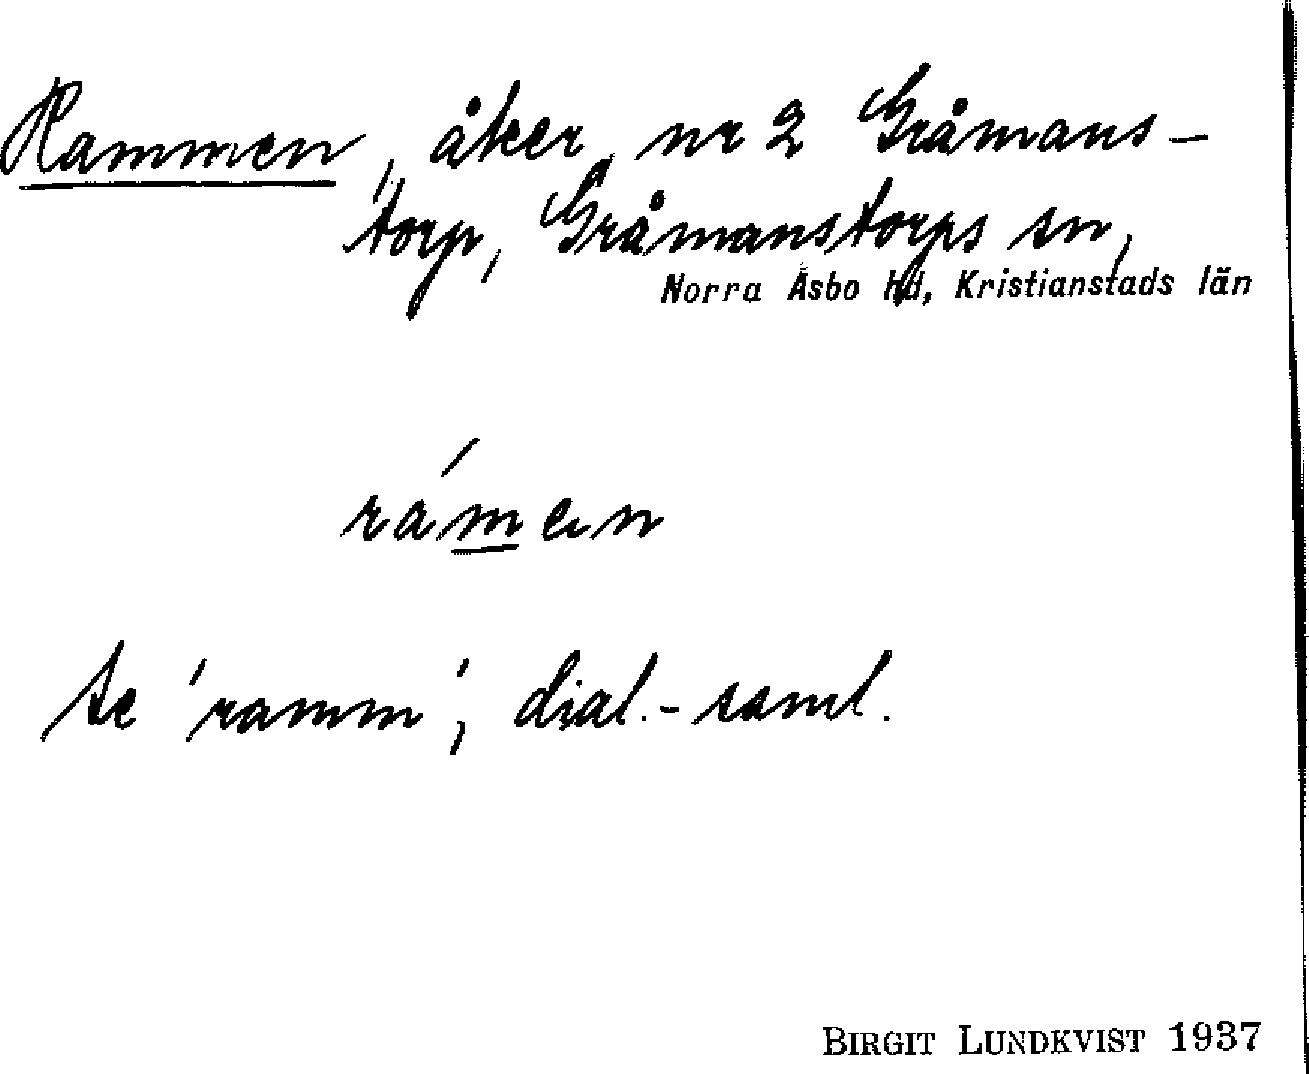 Rammen, åker, nr 2 Gråmans-
torp, Gråmanstorps sn,
Norra Åsbo hd, Kristianstads län
rámen
se 'ramm', dial.-saml.
BIRGIT LUNDKVIST 1937